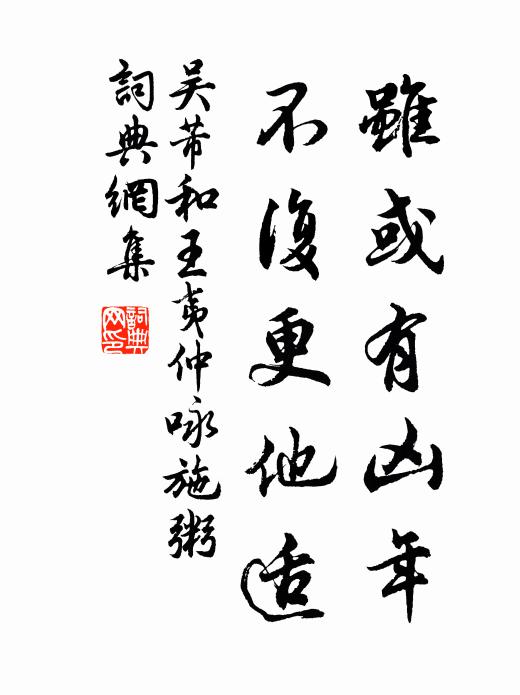 雖或有凶年
不復更他适
吴芾和王夷仲咏施粥
詞典網集
詞典
网印